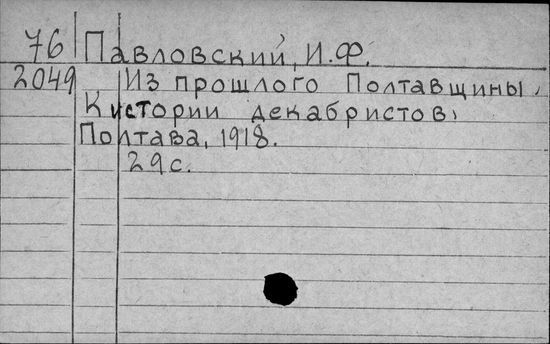 76 Павловский, И.Ф.
2049 Из прошлого Полтавщины.
К истории декабристов,
Полтава, 1918.
29 с.